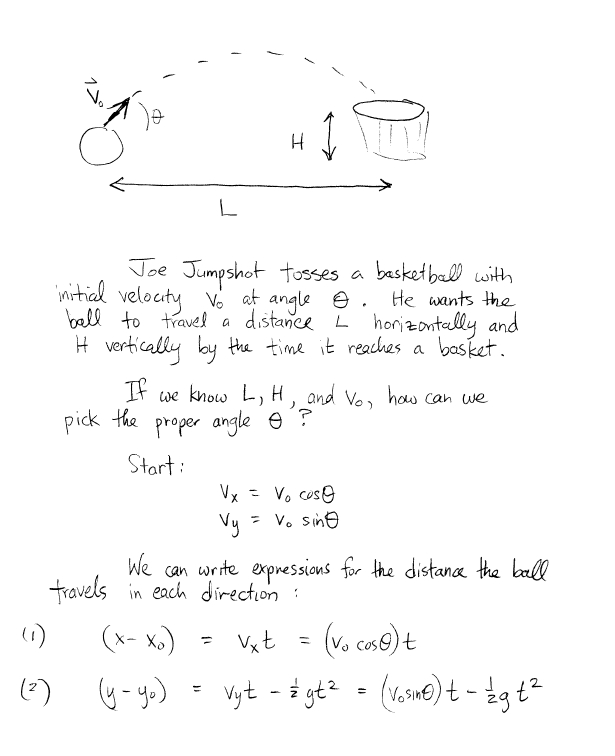 V₀
θ
H
L
Joe Jumpshot tosses a basketball with
initial velocity V₀ at angle θ. He wants the
ball to travel a distance L horizontally and
H vertically by the time it reaches a basket.
If we know L, H, and V₀, how can we
pick the proper angle θ?
Start:
Vx = V₀ cosθ
Vy = V₀ sinθ
We can write expressions for the distance the ball
travels in each direction:
(1) (x-x₀) = Vxt = (V₀ cosθ)t
(2) (y-y₀) = Vyt - ½gt² = (V₀sinθ)t - ½gt²